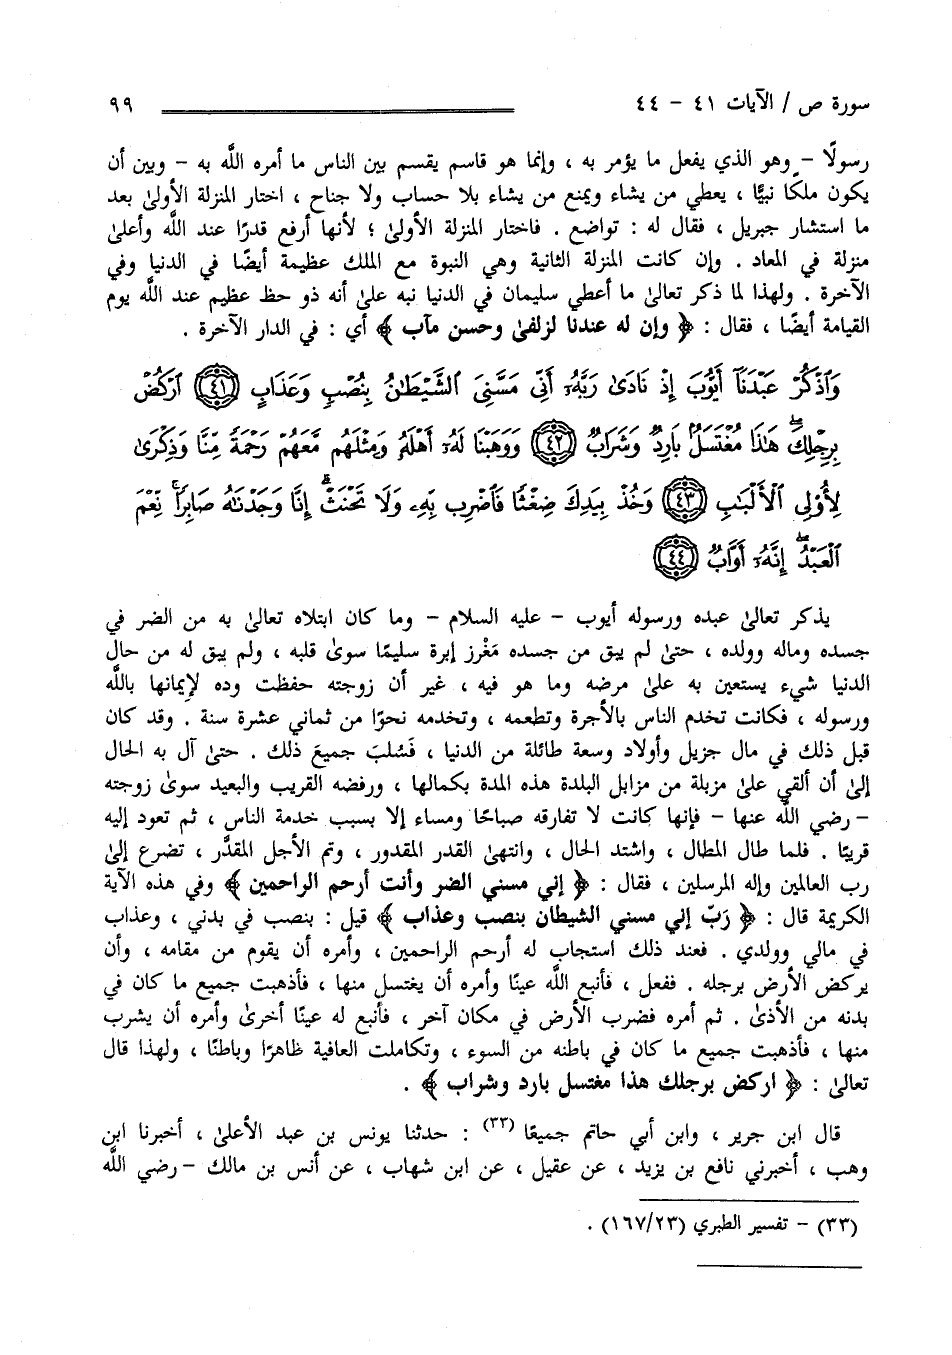 سورة ص / الآيات ٤١ - ٤٤ ٩٩
رسولًا - وهو الذي يفعل ما يؤمر به ، وإنما هو قاسم يقسم بين الناس ما أمره اللَّه به - وبين أن
يكون ملكًا نبيًّا ، يعطي من يشاء ويمنع من يشاء بلا حساب ولا جناح ، اختار المنزلة الأولىٰ بعد
ما استشار جبريل ، فقال له : تواضع . فاختار المنزلة الأولىٰ ؛ لأنها أرفع قدرًا عند اللَّه وأعلىٰ
منزلة في المعاد . وإن كانت المنزلة الثانية وهي النبوة مع الملك عظيمة أيضًا في الدنيا وفي
الآخرة . ولهذا لما ذكر تعالىٰ ما أعطي سليمان في الدنيا نبه علىٰ أنه ذو حظ عظيم عند اللَّه يوم
القيامة أيضًا ، فقال : ﴿ وإن له عندنا لزلفىٰ وحسن مآب ﴾ أي : في الدار الآخرة .
وَاذْكُرْ عَبْدَنَا أَيُّوبَ إِذْ نَادَىٰ رَبَّهُۥ أَنِّي مَسَّنِيَ الشَّيْطَانُ بِنُصْبٍ وَعَذَابٍ ﴿٤١﴾ ارْكُضْ
بِرِجْلِكَ ۖ هَٰذَا مُغْتَسَلٌ بَارِدٌ وَشَرَابٌ ﴿٤٢﴾ وَوَهَبْنَا لَهُۥ أَهْلَهُ وَمِثْلَهُم مَّعَهُمْ رَحْمَةً مِّنَّا وَذِكْرَىٰ
لِأُوْلِي الْأَلْبَابِ ﴿٤٣﴾ وَخُذْ بِيَدِكَ ضِغْثًا فَاضْرِب بِّهِۦ وَلَا تَحْنَثْ ۗ إِنَّا وَجَدْنَاهُ صَابِرًا ۚ نِّعْمَ
الْعَبْدُ ۖ إِنَّهُۥ أَوَّابٌ ﴿٤٤﴾
يذكر تعالىٰ عبده ورسوله أيوب - عليه السلام - وما كان ابتلاه تعالىٰ به من الضر في
جسده وماله وولده ، حتىٰ لم يبق من جسده مَغْرز إبرة سليمًا سوىٰ قلبه ، ولم يبق له من حال
الدنيا شيء يستعين به علىٰ مرضه وما هو فيه ، غير أن زوجته حفظت وده لإيمانها باللَّه
ورسوله ، فكانت تخدم الناس بالأجرة وتطعمه ، وتخدمه نحوًا من ثماني عشرة سنة . وقد كان
قبل ذلك في مال جزيل وأولاد وسعة طائلة من الدنيا ، فَسُلبَ جميعَ ذلك . حتىٰ آل به الحال
إلىٰ أن ألقي علىٰ مزبلة من مزابل البلدة هذه المدة بكمالها ، ورفضه القريب والبعيد سوىٰ زوجته
- رضي اللَّه عنها - فإنها كانت لا تفارقه صباحًا ومساء إلا بسبب خدمة الناس ، ثم تعود إليه
قريبًا . فلما طال المطال ، واشتد الحال ، وانتهىٰ القدر المقدور ، وتم الأجل المقدَّر ، تضرع إلىٰ
رب العالمين وإله المرسلين ، فقال : ﴿ إني مسني الضر وأنت أرحم الراحمين ﴾ وفي هذه الآية
الكريمة قال : ﴿ رَبّ إني مسني الشيطان بنصب وعذاب ﴾ قيل : بنصب في بدني ، وعذاب
في مالي وولدي . فعند ذلك استجاب له أرحم الراحمين ، وأمره أن يقوم من مقامه ، وأن
يركض الأرض برجله . ففعل ، فأنبع اللَّه عينًا وأمره أن يغتسل منها ، فأذهبت جميع ما كان في
بدنه من الأذىٰ . ثم أمره فضرب الأرض في مكان آخر ، فأنبع له عينًا أخرىٰ وأمره أن يشرب
منها ، فأذهبت جميع ما كان في باطنه من السوء ، وتكاملت العافية ظاهرًا وباطنًا ، ولهذا قال
تعالىٰ : ﴿ اركض برجلك هذا مغتسل بارد وشراب ﴾ .
قال ابن جرير ، وابن أبي حاتم جميعًا (٣٣) : حدثنا يونس بن عبد الأعلىٰ ، أخبرنا ابن
وهب ، أخبرني نافع بن يزيد ، عن عقيل ، عن ابن شهاب ، عن أنس بن مالك - رضي اللَّه
(٣٣) - تفسير الطبري (١٦٧/٢٣) .